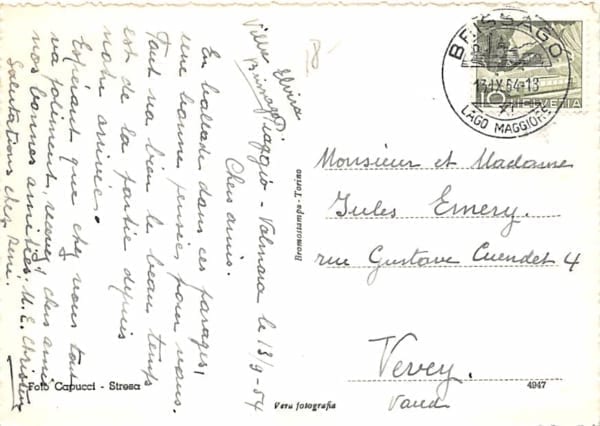 Villa Elvira
Brissago
Piaggio - Valmara le 13/9-54
Chers amis.
En ballade dans ces parages,
une bonne pensée pour vous.
Tout va bien le beau temps
est de la partie depuis
notre arrivée.
Espérant que chez vous tout
va joliment, recevez, chers amis
nos bonnes amitiés. M. E. Christen
Salutations chez René.
Foto Capucci - Stresa
Vera fotografia
Bromostampa - Torino
4947
BRISSAGO
13.IX.54-18
LAGO MAGGIORE
10 HELVETIA
Monsieur et Madame
Jules Emery.
rue Gustave Cuendet 4
Vevey.
Vaud